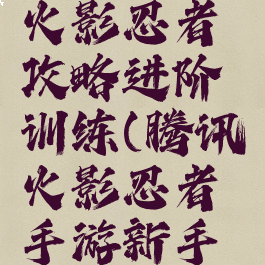 火影忍者
攻略进阶
训练(腾讯
火影忍者
手游新手